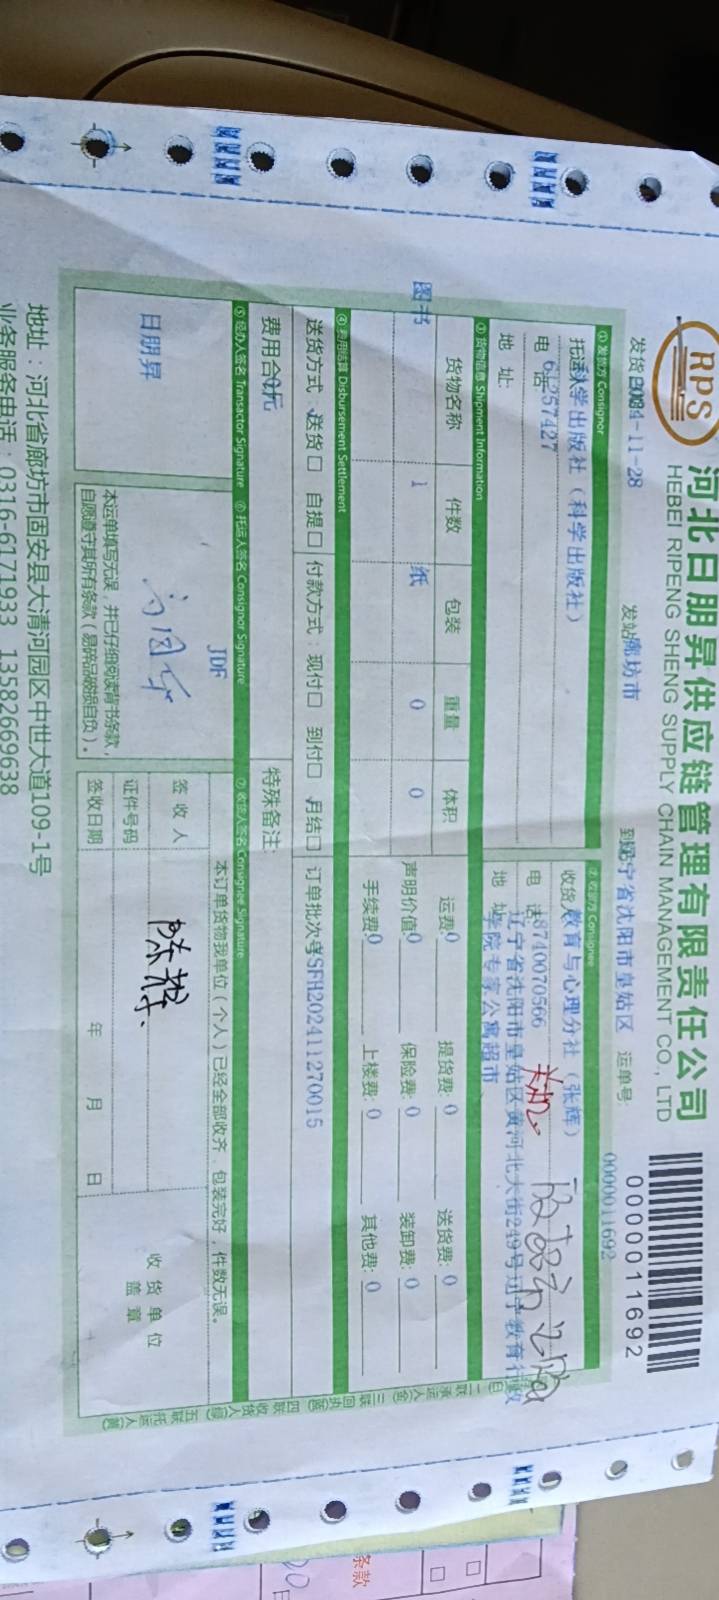 RPS
河北日朋昇供应链管理有限责任公司
HEBEI RIPENG SHENG SUPPLY CHAIN MANAGEMENT CO., LTD
0000011692
发货日 2024-11-28
发站 廊坊市
到站 辽宁省沈阳市皇姑区
运单号: 0000011692
①发货方 Consignor
托运人 大学出版社（科学出版社）
电 话 64257427
地 址:
②收货方 Consignee
收货人 教育与心理分社（张辉）
电 话 8740070566
地 址 辽宁省沈阳市皇姑区黄河北大街249号辽宁教育行政
学院专家公寓超市
③货物信息 Shipment Information
货物名称 件数 包装 重量 体积
图书 1 纸 0 0
运费: 0 提货费: 0 送货费: 0
声明价值: 0 保险费: 0 装卸费: 0
手续费: 0 上楼费: 0 其他费: 0
④费用结算 Disbursement Settlement
送货方式: 送货□ 自提□ 付款方式: 现付□ 到付□ 月结□ 订单批次号 SFH202411270015
费用合 0元
特殊备注:
⑤经办人签名 Transactor Signature
⑥托运人签名 Consignor Signature
⑦收货人签名 Consignee Signature
日朋昇
JDF
本运单填写无误，并已仔细阅读背书条款，
自愿遵守其所有条款（易碎品破损自负）。
本订单货物我单位（个人）已经全部收齐，包装完好，件数无误。
签收人 陈辉
证件号码
签收日期 年 月 日
收货单位
盖章
二联承运人
三联回执
四联收货人
五联托运人
地址：河北省廊坊市固安县大清河园区中世大道109-1号
业务服务电话：0316-6171933 13582669638
条款